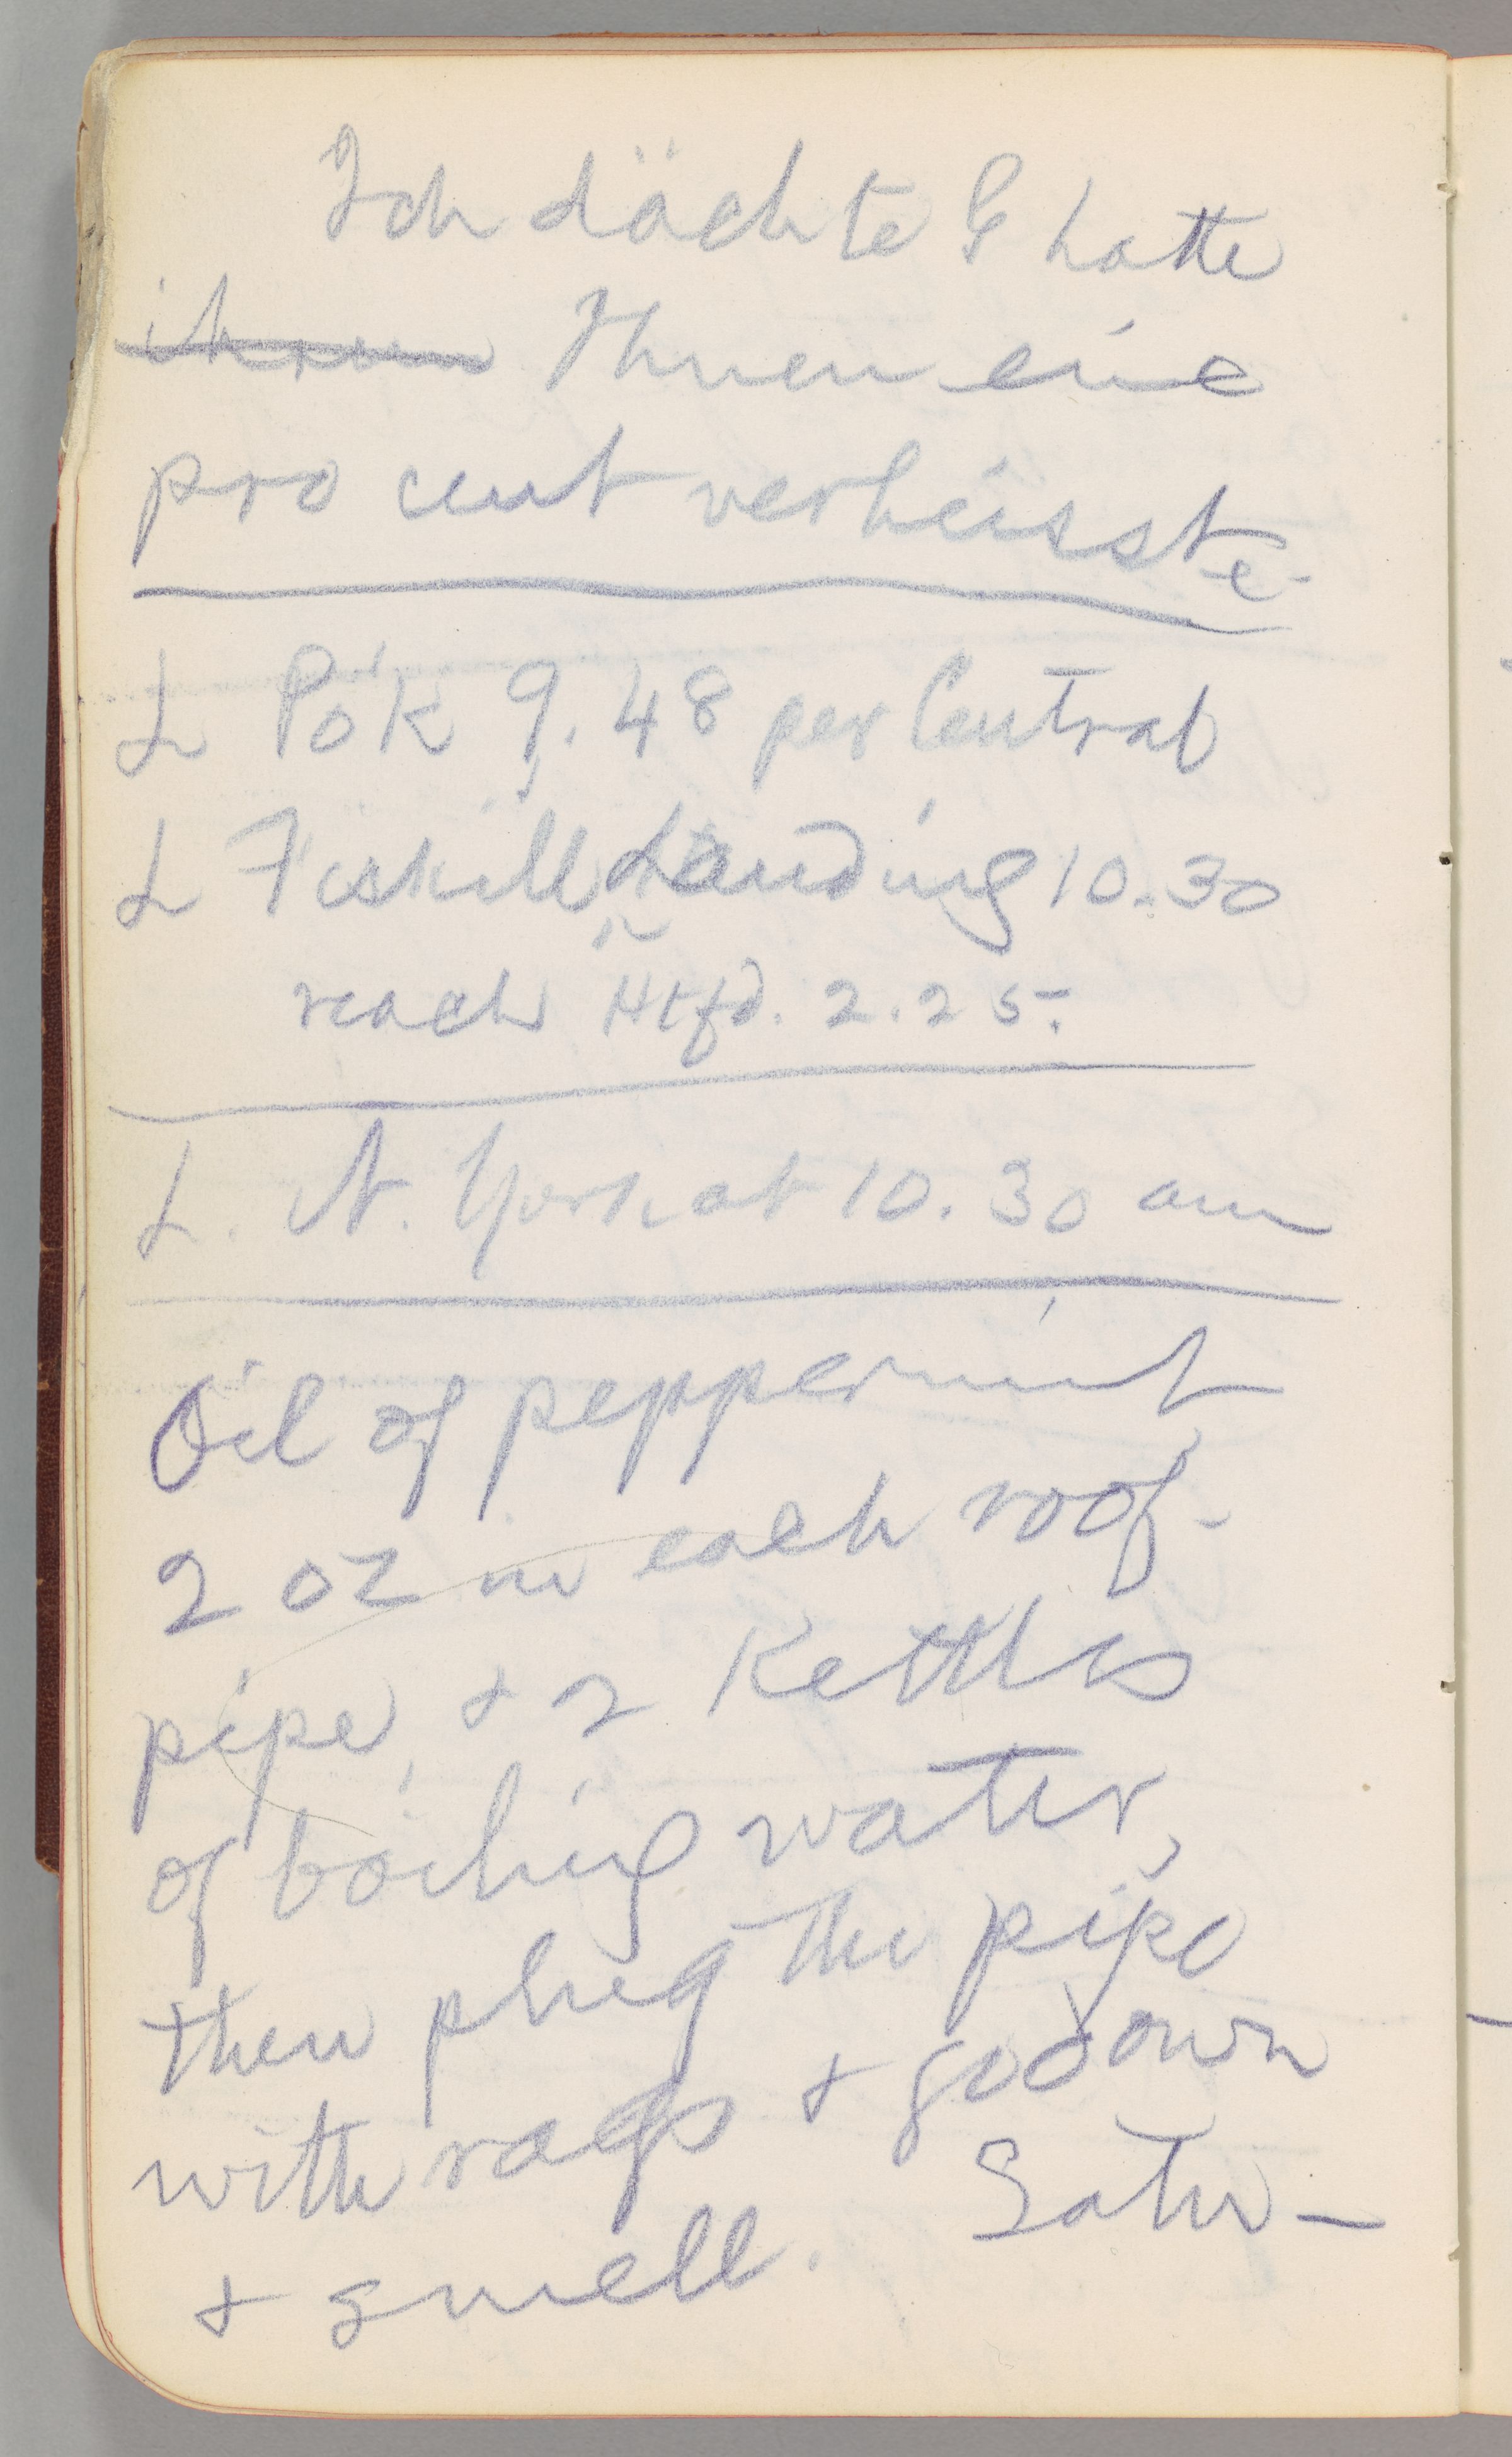 Ich dächte G hatte
ihnen Ihnen eine
pro cent verheisste.
L Po'k 9.48 per Central
L Fiskill Landing 10.30
reach Htfd. 2.25.
L. N. York at 10.30 am
Oil of peppermint
2 oz in each roof-
pipe, & 2 kettles
of boiling water,
then plug the pipe
with rags & go down
& smell. Satur-